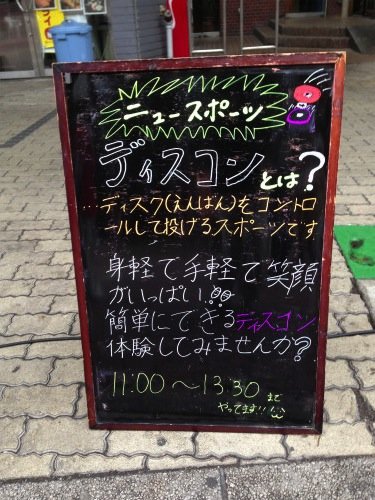 ニュースポーツ
ディスコンとは?
...ディスク(えんばん)をコントロ
ールして投げるスポーツです
身軽で手軽で笑顔
がいっぱい!!
簡単にできるディスコン
体験してみませんか?
11:00〜13:30まで
やってます!!